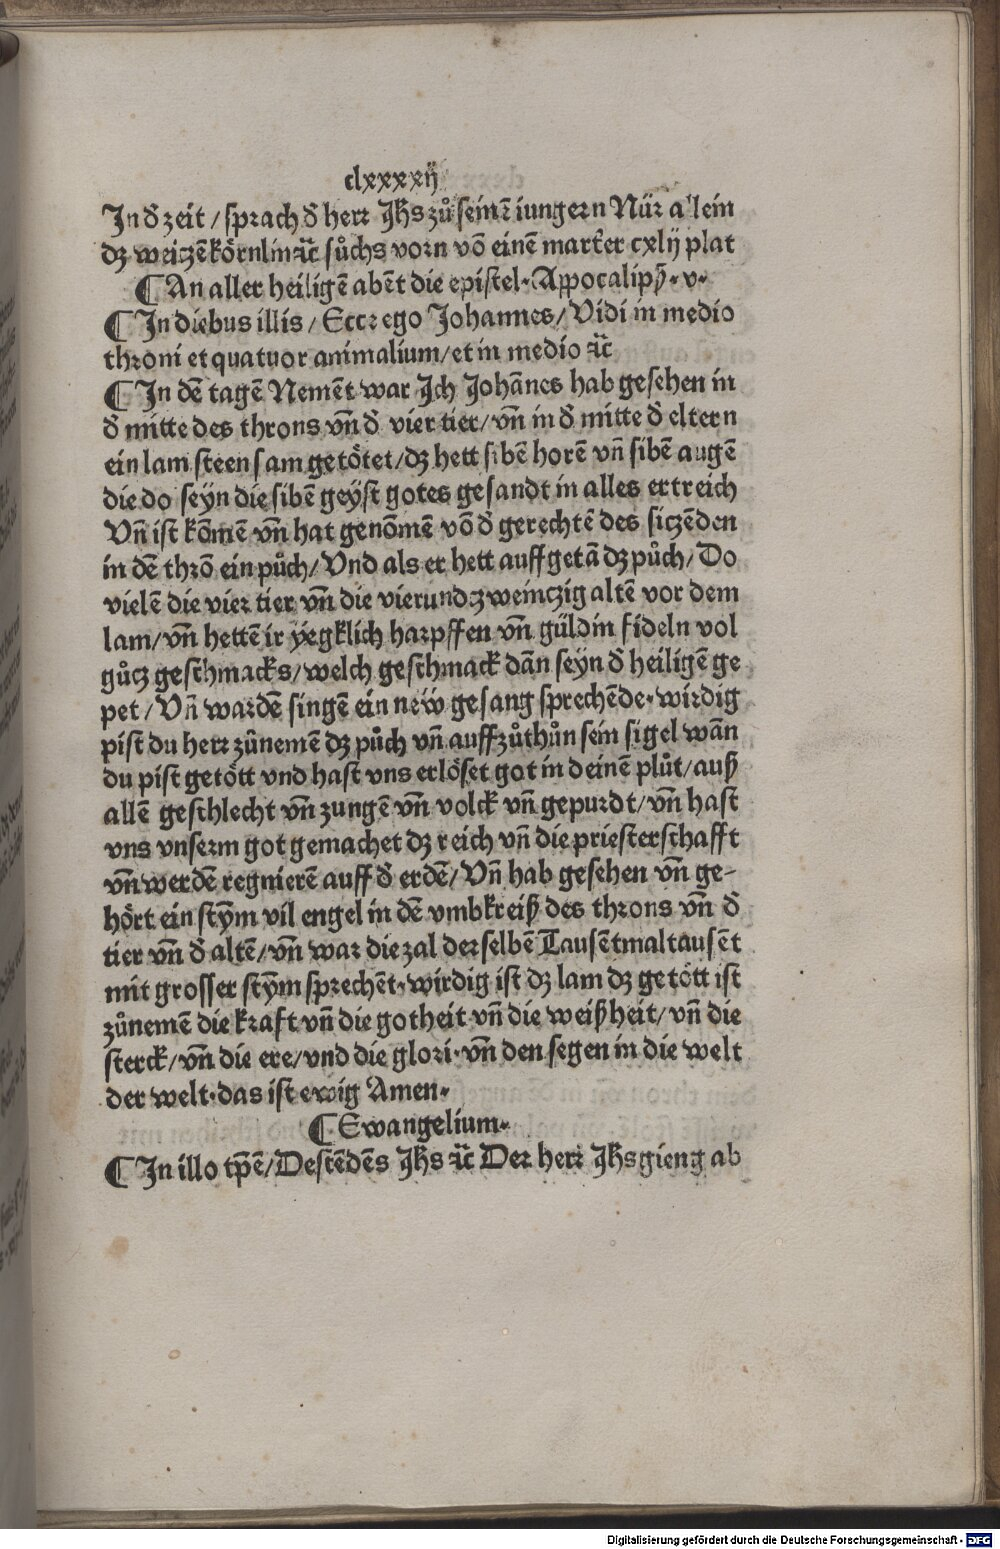 clxxxxij
In đ zeit / sprach đ herr Jhs zů seinē iungern Nür allein
dz weiczē körnlin ꝛc̄ sůchs vorn vō einem marter cxlij plat
¶ An aller heiligē abēt die epistel · Appocalipß · v ·
¶ In diebus illis / Ecce ego Johannes / Vidi in medio
throni et quatuor animalium / et in medio ꝛc̄
¶ In dē tagē Nemēt war Ich Johānes hab gesehen in
đ mitte des throns vn̄ đ vier tier / vn̄ in đ mitte đ eltern
ein lam steen sam getötet / dz hett sibē horē vn̄ sibē augē
die do seyn die sibē geyst gotes gesandt in alles ertreich
Vn̄ ist kōmē vn̄ hat genōmē vō đ gerechtē des siczēden
in dē thrō ein půch / Vnd als er hett auffgetā dz půch / Do
vielē die vier tier vn̄ die vierundczweinczig altē vor dem
lam / vn̄ hettē ir yegklich harpffen vn̄ güldin fideln vol
gůcz geschmacks / welch geschmack dān seyn đ heiligē ge
pet / Vn̄ wardē singē ein new gesang sprechēde · wirdig
pist du herr zůnemē dz půch vn̄ auffzůthůn sein sigel wān
du pist getött vnd hast vns erlöset got in deinē plůt / auß
allē geschlecht vn̄ zungē vn̄ volck vn̄ gepurdt / vn̄ hast
vns vnserm got gemachet dz reich vn̄ die priesterschafft
vn̄ werdē regnierē auff đ erdē / Vn̄ hab gesehen vn̄ ge-
hört ein stȳm vil engel in dē vmbkreiß des throns vn̄ đ
tier vn̄ đ altē / vn̄ war die zal derselbē Tausētmaltausēt
mit grosser stȳm sprechēt · wirdig ist dz lam dz getött ist
zůnemē die kraft vn̄ die gotheit vn̄ die weißheit / vn̄ die
sterck / vn̄ die ere / vnd die glori · vn̄ den segen in die welt
der welt · das ist ewig Amen ·
¶ Ewangelium ·
¶ In illo tp̄e / Descēdēs Jhs ꝛc̄ Der herr Jhs gieng ab
Digitalisierung gefördert durch die Deutsche Forschungsgemeinschaft - DFG